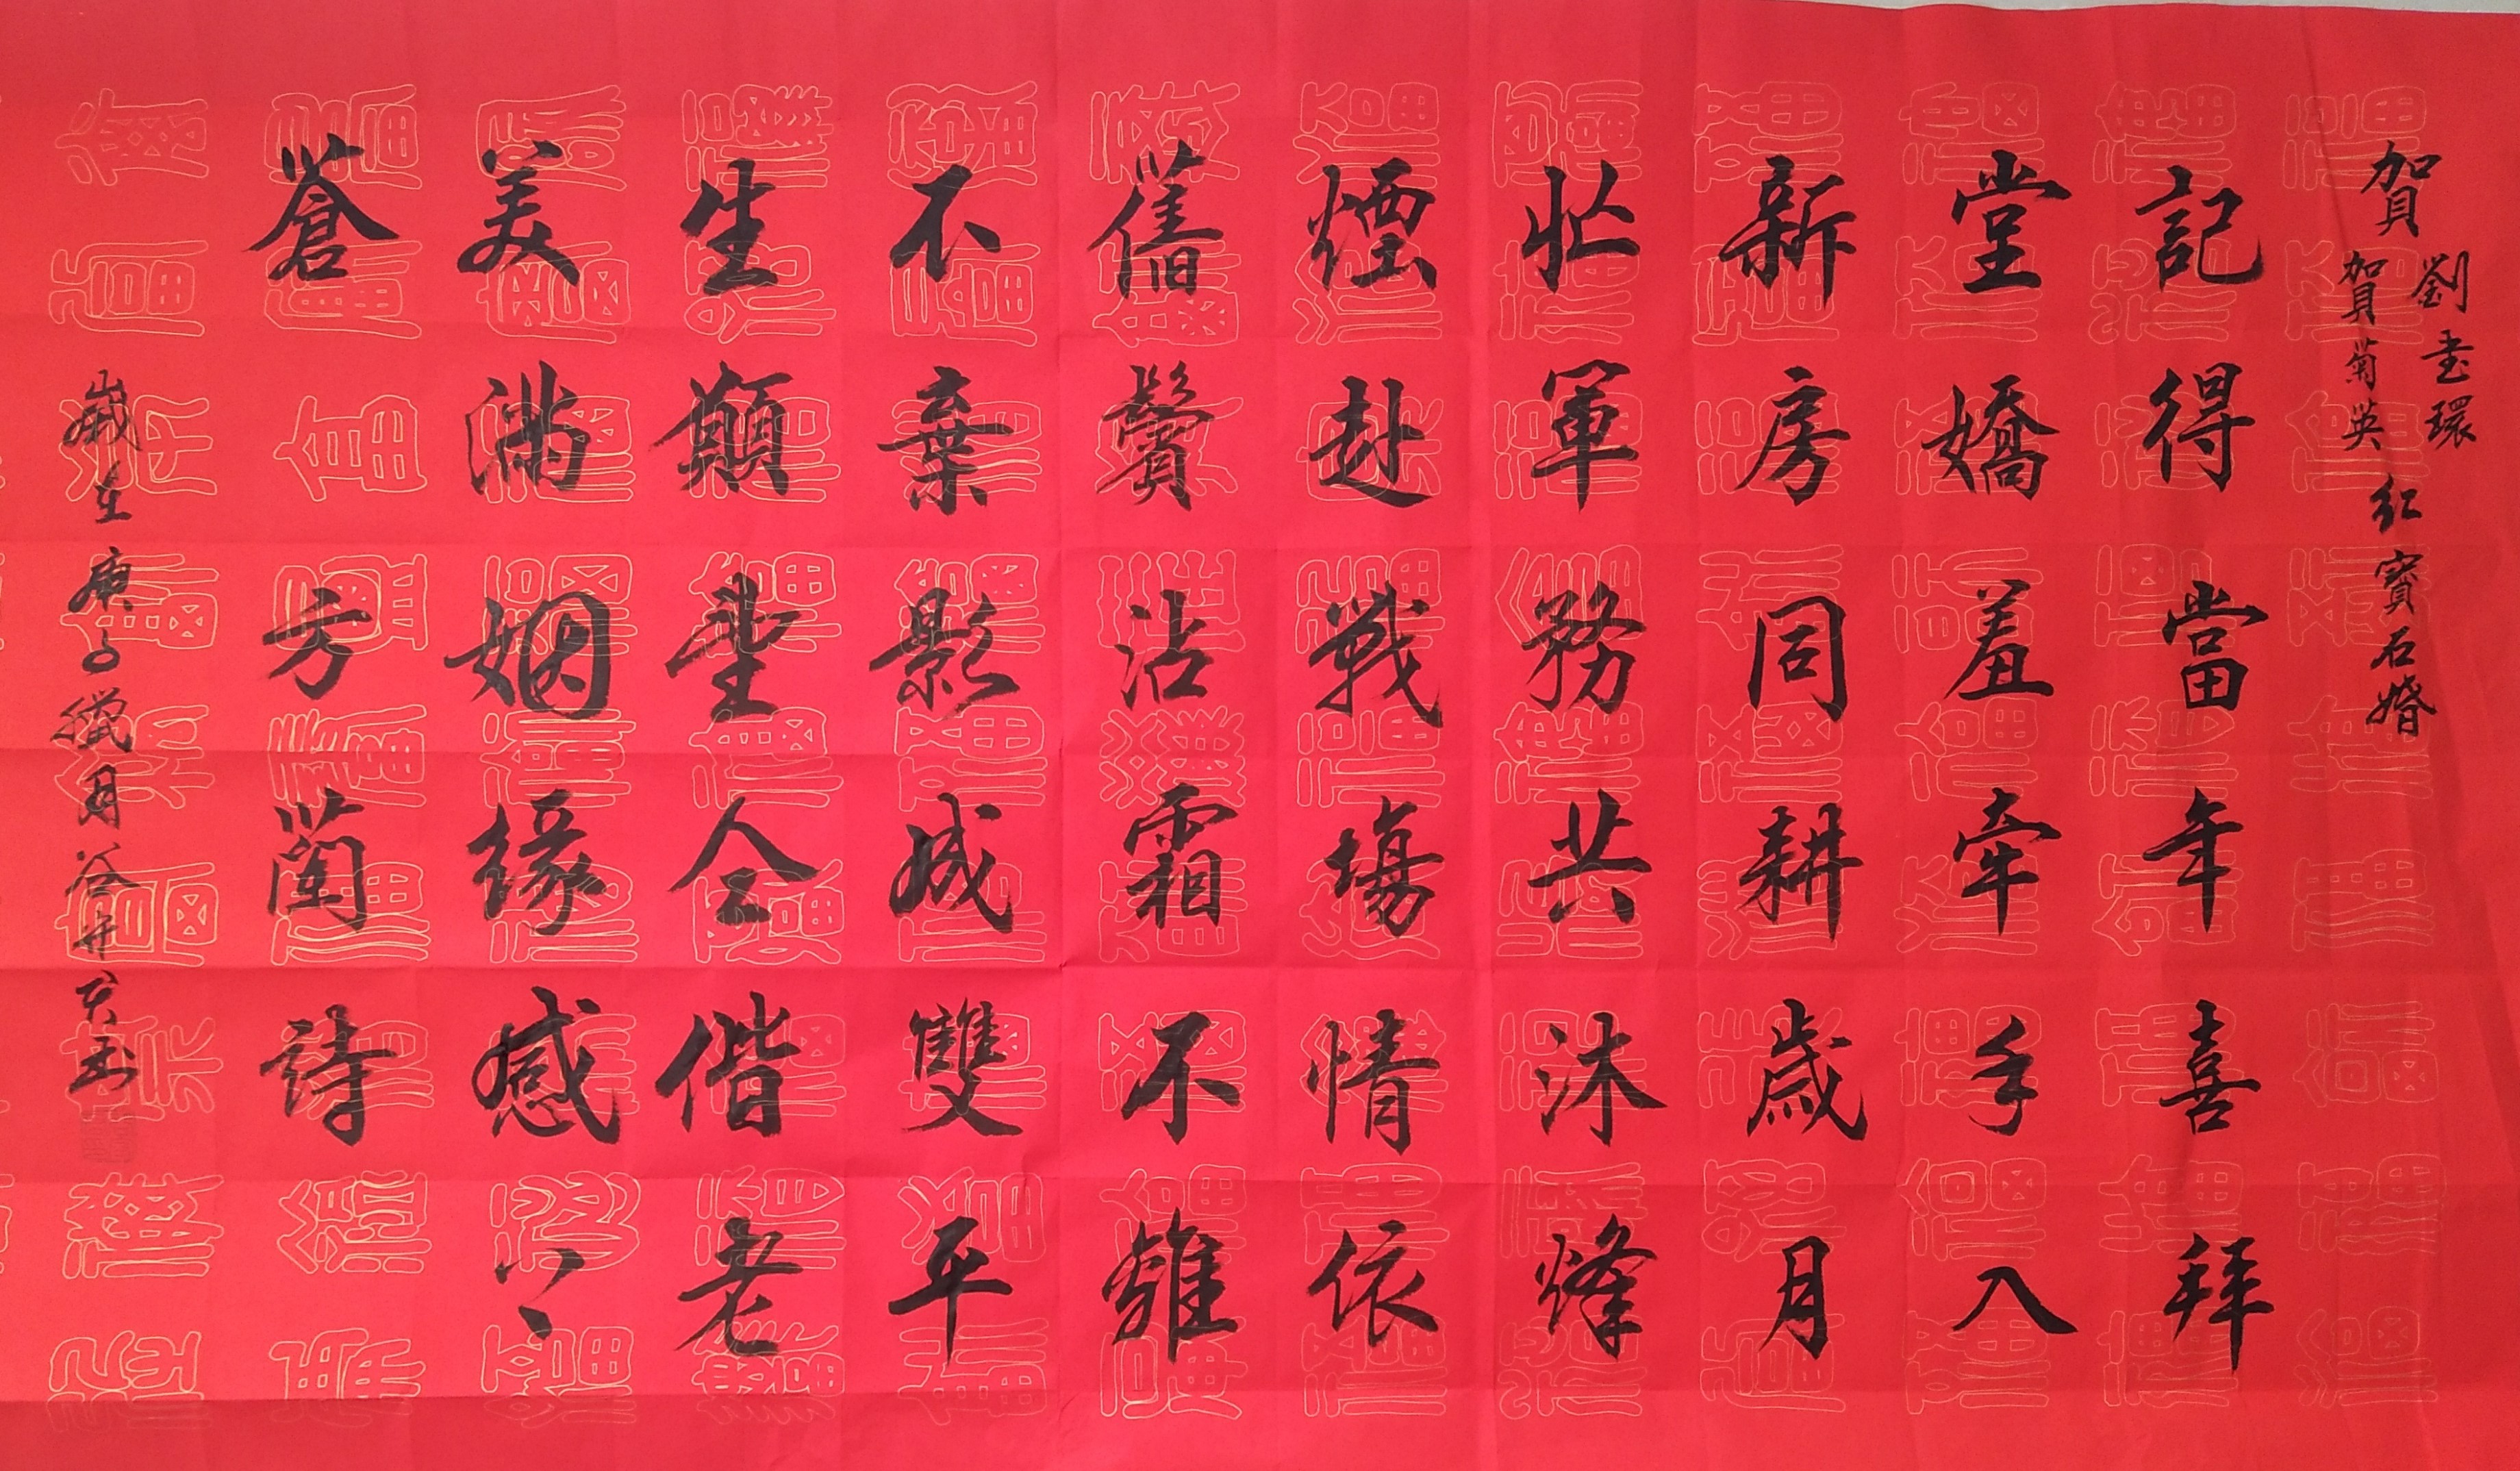 賀
劉書環
賀菊英
紅寶石婚
記得當年喜拜
堂嬌羞牽手入
新房同耕歲月
忙軍務共沐烽
煙赴戰場情依
舊鬢沾霜不離
不棄影成雙平
生願望今偕老
美滿姻緣感上
蒼 方蘭詩
歲在庚子臘月